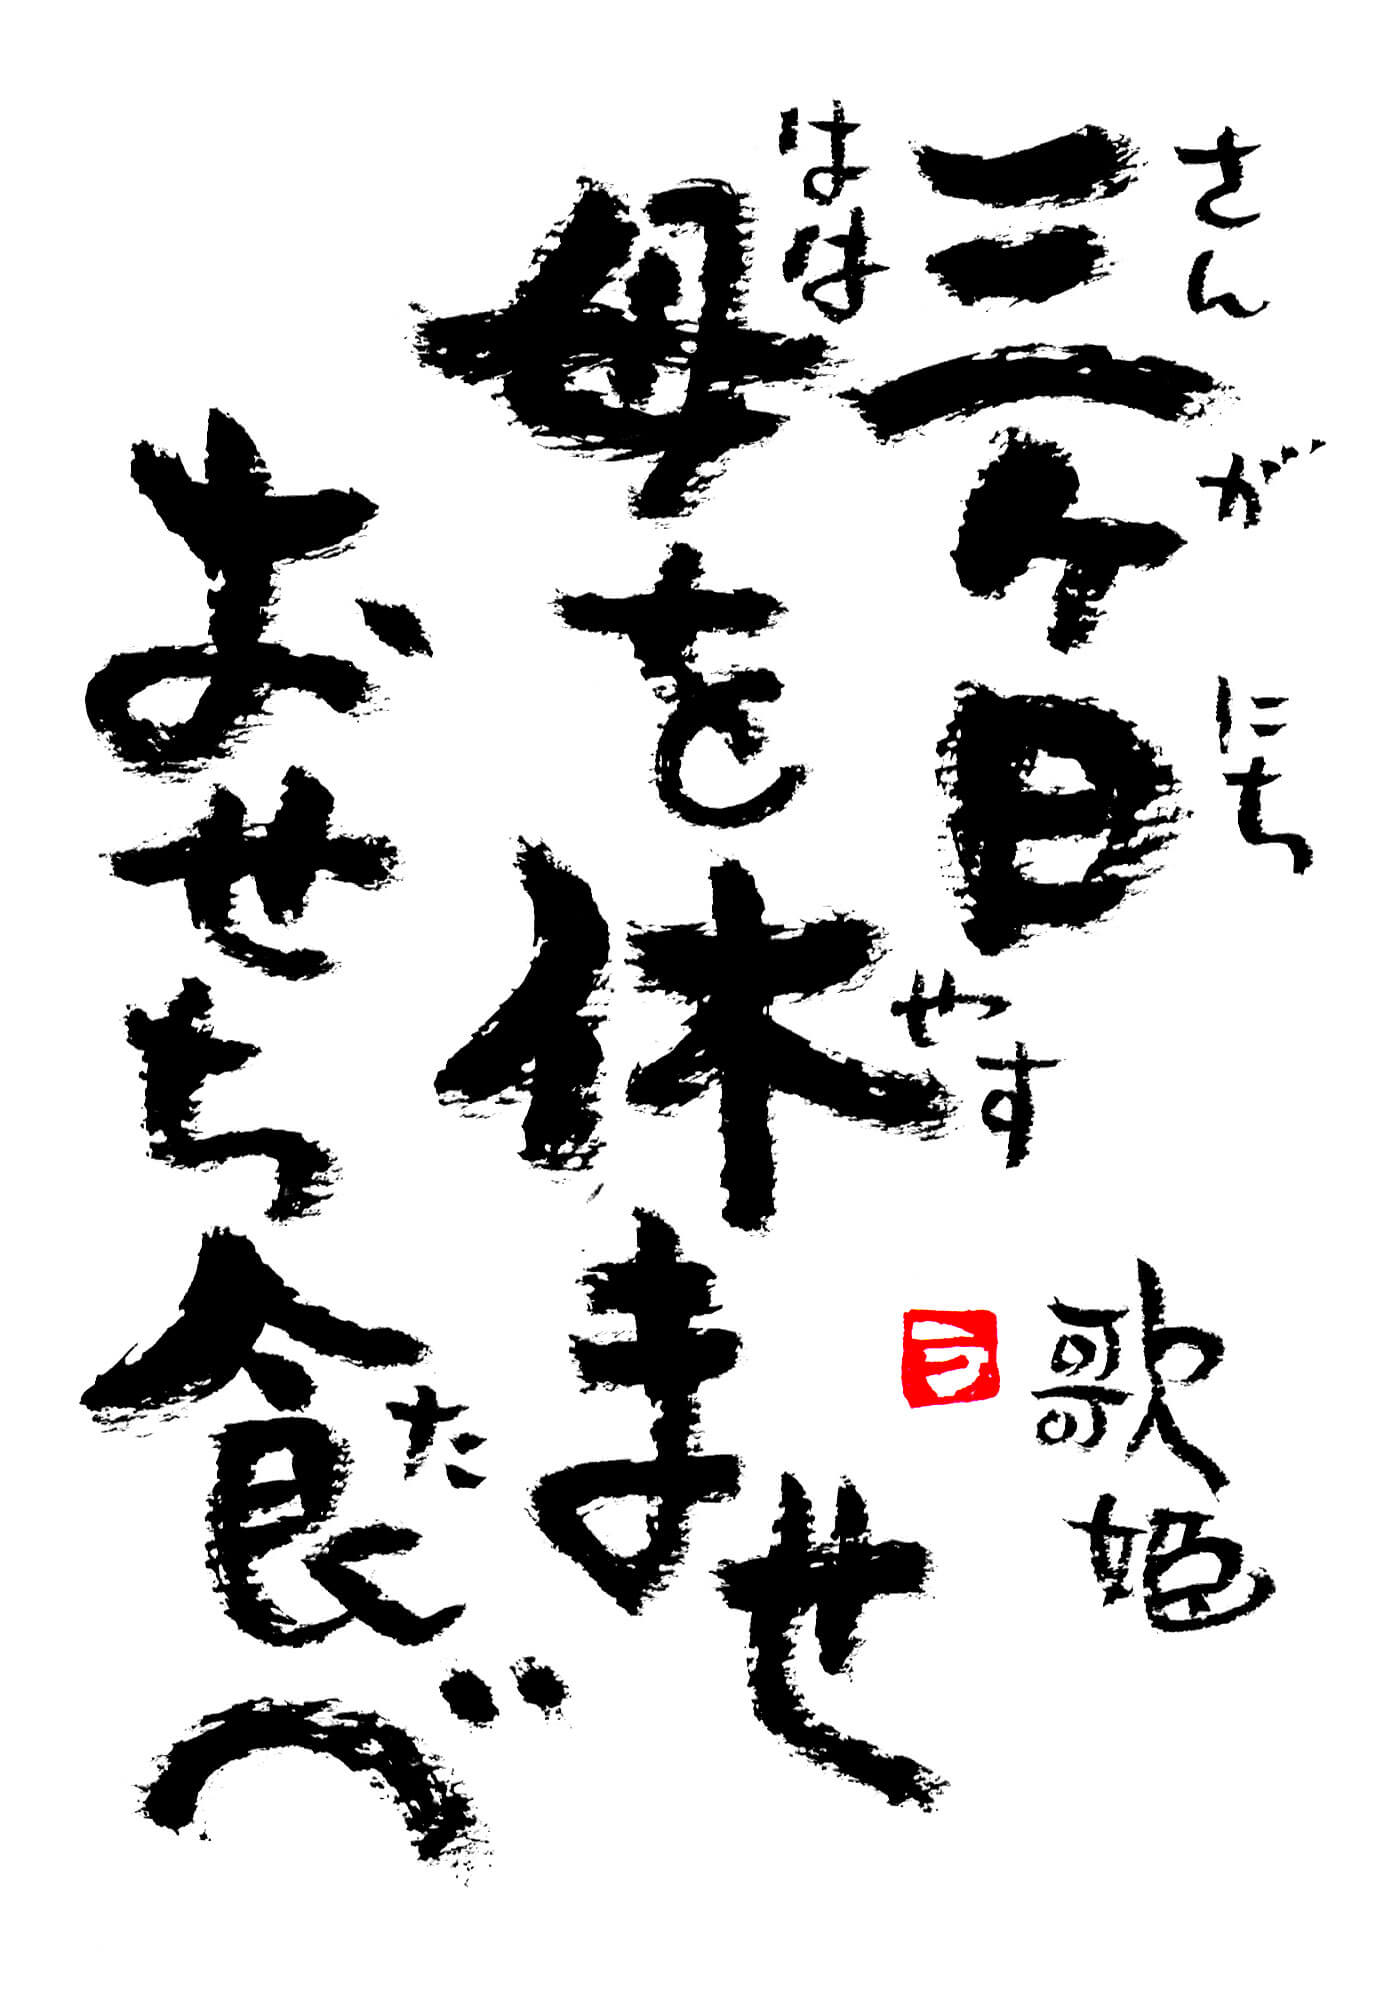 さんがにち
三ヶ日
はは やす
母を休ませ
おせち食べ
た
歌姫